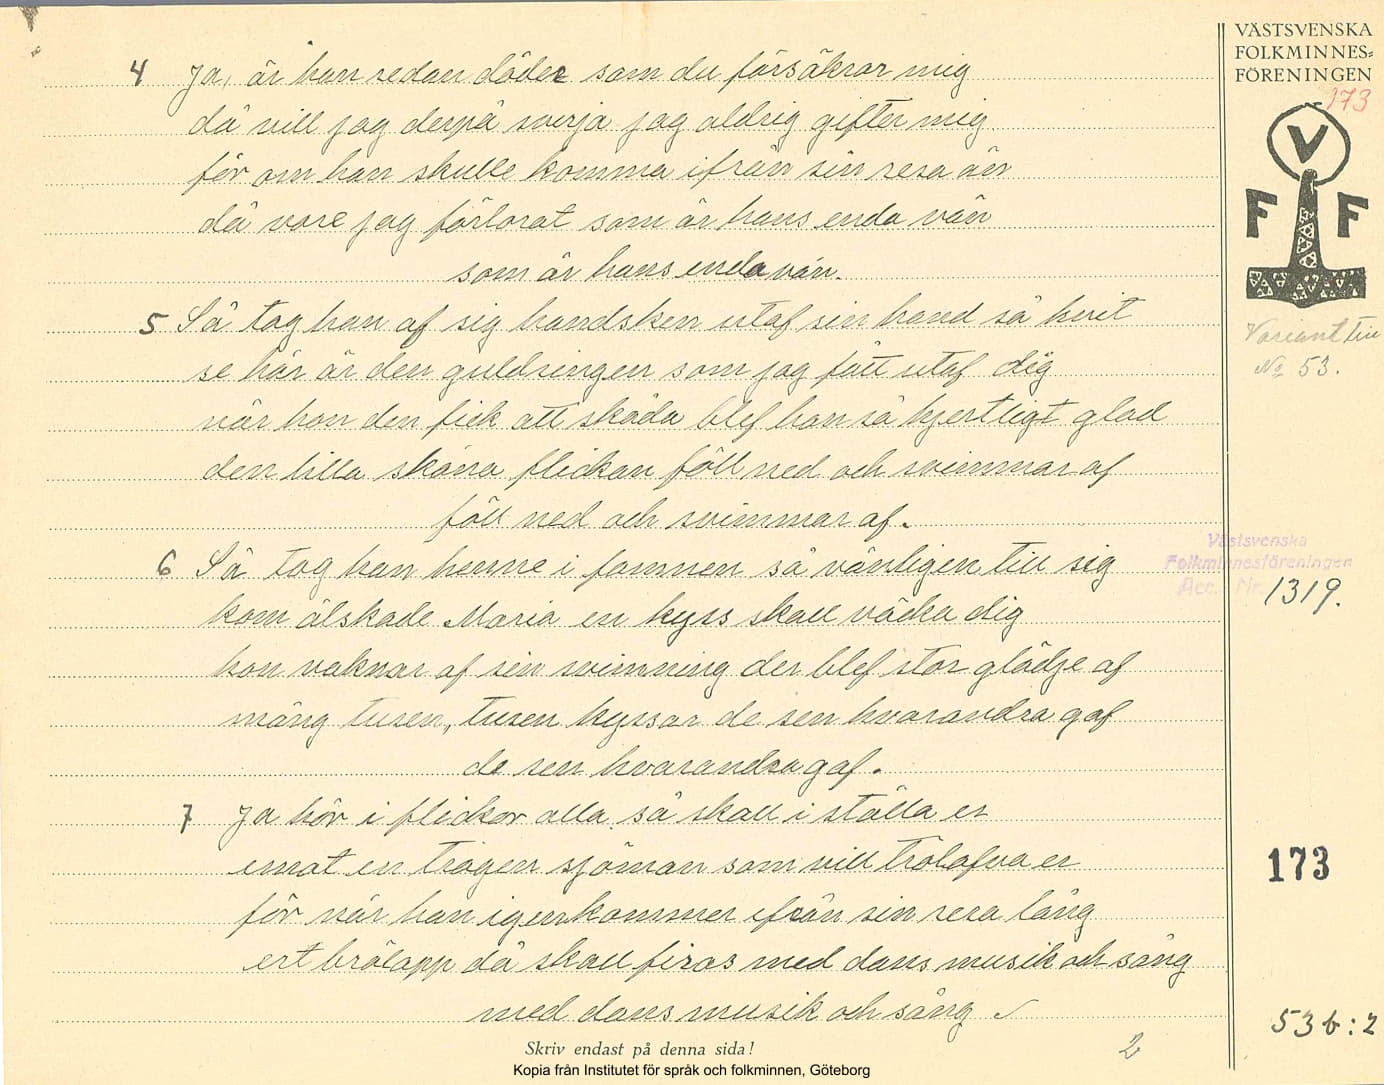 4 Ja, är han redan döder som du försäkrar mig
då vill jag derpå sverja jag aldrig gifter mig
för om han skulle komma ifrån sin resa än
då vore jag förlorat som är hans enda vän
som är hans enda vän.
5 Så tog han af sig handsken utaf sin hand så hvit
se här är den guldringen som jag fått utaf dig
när hon den fick att skåda blef hon så hjertligt glad
den lilla sköna flickan föll ned och svimmar af
föll ned och svimmar af.
6 Så tog han henne i famnen så vänligen till sig
kom älskade Maria en kyss skall väcka dig
hon vaknar af sin svimning der blef stor glädje af
mång tusen, tusen kyssar de sen hvarandra gaf
de sen hvarandra gaf.
7 Ja hör i flickor alla, så skall i ställa er
emot en trogen sjöman som vill trolofva er
för när han igenkommer ifrån sin resa lång
ert brölapp då skall firas med dans musik och sång
med dans musik och sång
2
Skriv endast på denna sida!
Kopia från Institutet för språk och folkminnen, Göteborg
VÄSTSVENSKA
FOLKMINNES=
FÖRENINGEN
173
V
F F
Variant till
No 53.
Västsvenska
Folkminnesföreningen
Acc. Nr 1319.
173
53 b : 2